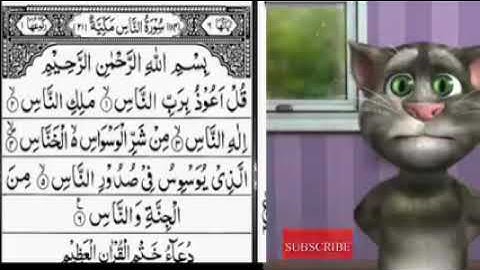 سُوْرَةُ النَّاسِ مَكِّيَّةٌ
بِسْمِ اللهِ الرَّحْمٰنِ الرَّحِيْمِ
قُلْ اَعُوْذُ بِرَبِّ النَّاسِ ۙ۱ مَلِكِ النَّاسِ ۙ۲
اِلٰهِ النَّاسِ ۙ۳ مِنْ شَرِّ الْوَسْوَاسِ ۙ۬ الْخَنَّاسِ ۪ۙ۴
الَّذِیْ یُوَسْوِسُ فِیْ صُدُوْرِ النَّاسِ ۙ۵ مِنَ
الْجِنَّةِ وَالنَّاسِ ۠۶
دُعَآءُ خَتْمِ الْقُرْاٰنِ الْعَظِیْمِ
SUBSCRIBE